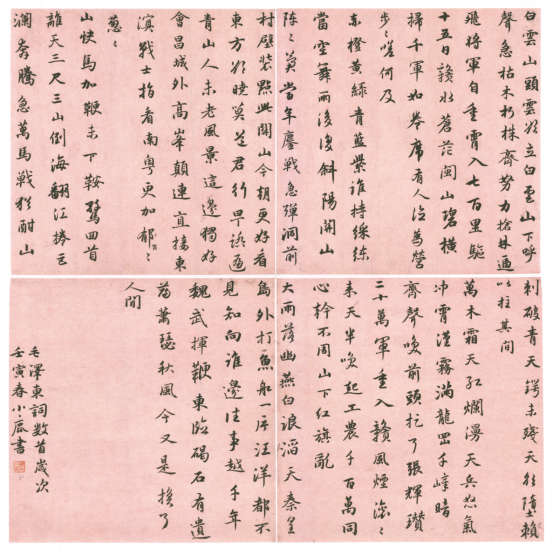 白雲山頭雲欲立白雲山下呼
聲急枯木朽株齊努力槍林逼
飛將軍自重霄入七百里驅
十五日贛水蒼茫閩山碧橫
掃千軍如卷席有人泣為營
步〻嗟何及
赤橙黃綠青藍紫誰持綵練
當空舞雨後復斜陽關山
陣〻當年鏖戰急彈洞前
村壁裝點此關山今朝更好看
東方欲曉莫道君行早踏遍
青山人未老風景這邊獨好
會昌城外高峯顛連直接東
溟戰士指看南粵更加郁〻
蔥〻
山快馬加鞭未下鞍驚回首
離天三尺三山倒海翻江捲巨
瀾奔騰急萬馬戰猶酣山
刺破青天鍔未殘天欲墮賴
以拄其間
萬木霜天紅爛漫天兵怒氣
沖霄漢霧滿龍岡千嶂暗
齊聲喚前頭捉了張輝瓚
二十萬軍重入贛風煙滾〻
來天半喚起工農千百萬同
心幹不周山下紅旗亂
大雨落幽燕白浪滔天秦皇
島外打魚船一片汪洋都不
見知向誰邊往事越千年
魏武揮鞭東臨碣石有遺
篇蕭瑟秋風今又是換了
人間
毛澤東詞數首歲次
壬寅春小書